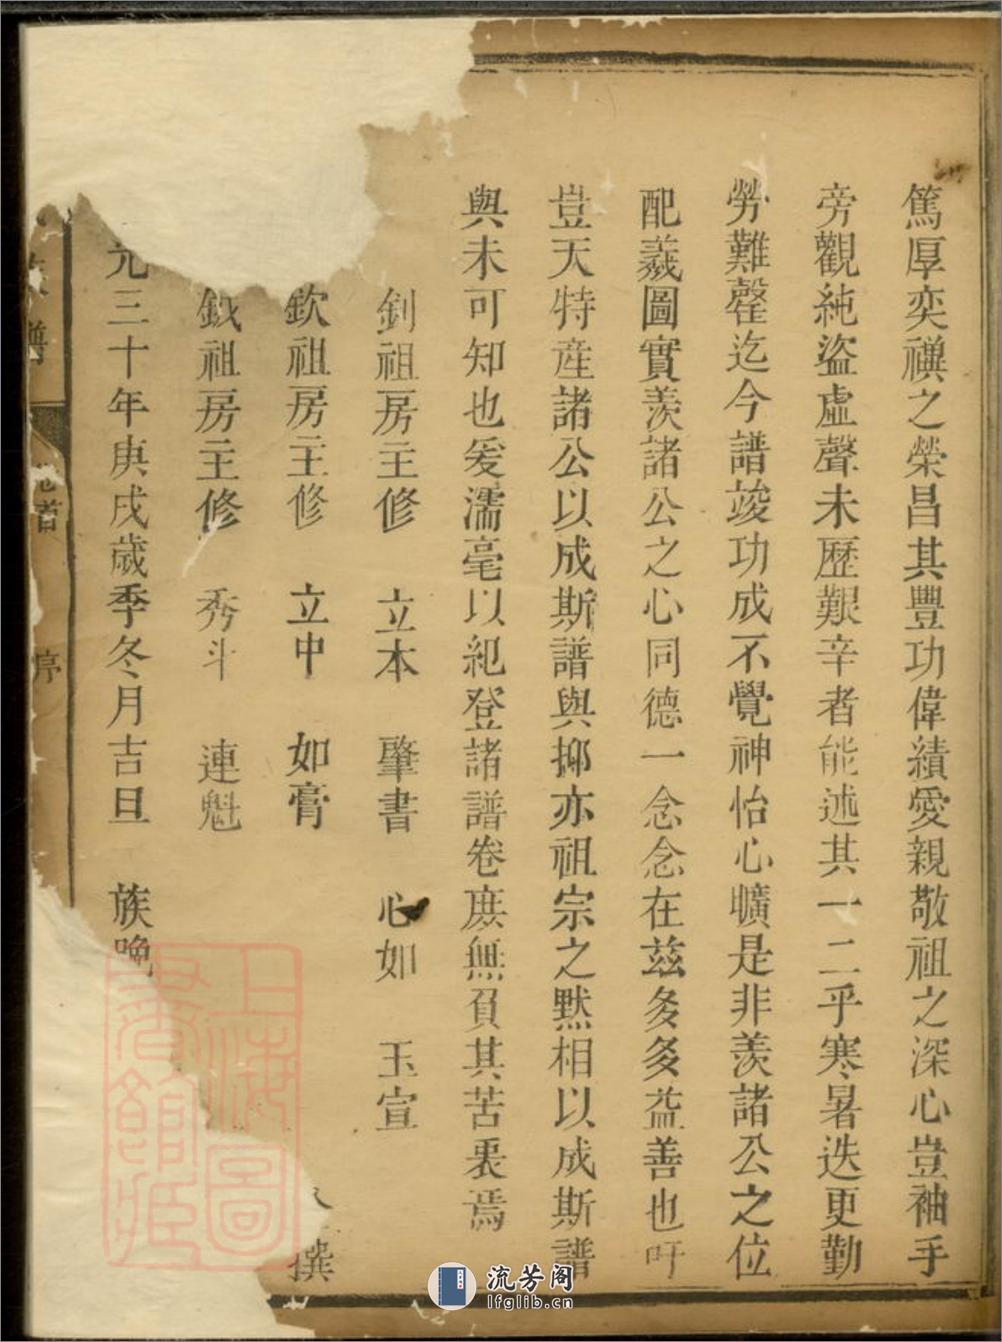 篤厚奕禩之榮昌其豐功偉績愛親敬祖之深心豈袖手
旁觀純盜虛聲未歷艱辛者能述其一二乎寒暑迭更勤
勞難罄迄今譜竣功成不覺神怡心曠是非羨諸公之位
配羲圖實羨諸公之心同德一念念在茲多多益善也吁
豈天特産諸公以成斯譜與抑亦祖宗之默相以成斯譜
與未可知也爰濡毫以紀登諸譜卷庶無負其苦衷焉
釗祖房主修 立本 肇書 心如 玉宣
欽祖房主修 立中 如膏
撰
鉞祖房主修 秀斗 連魁
元三十年庚戌歲季冬月吉旦 族晚
譜
首
序
上海圖書館藏
流芳阁
lfglib.cn